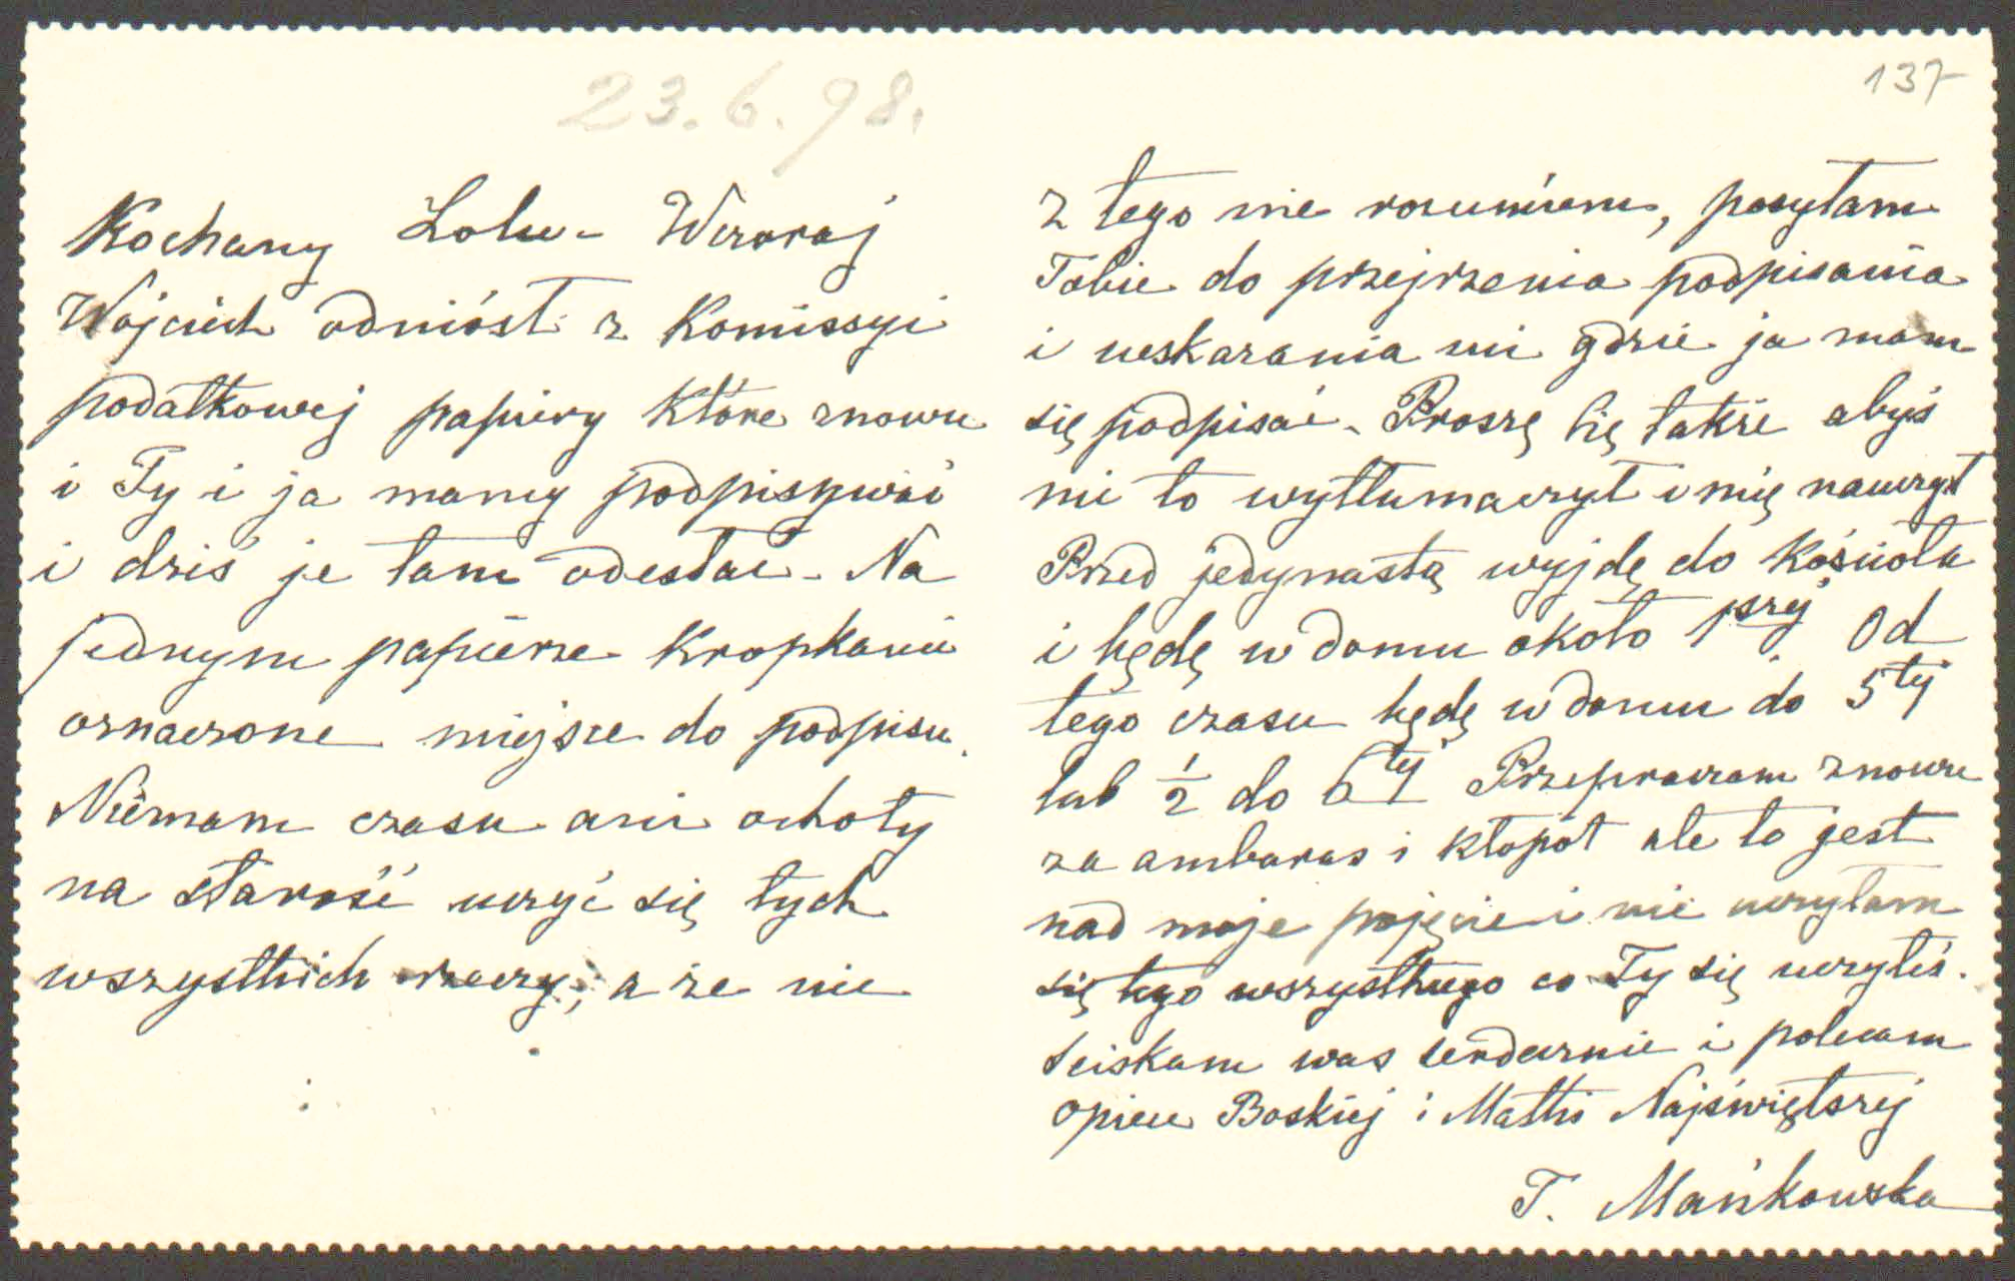 23.6.98.
137
Kochany Lolu - Wczoraj
Wojciech odniósł z Komissyi
podatkowej papiery które znowu
i Ty i ja mamy podpisywać
i dziś je tam odesłać - Na
jednym papierze kropkami
oznaczone miejsce do podpisu.
Niemam czasu ani ochoty
na starość uczyć się tych
wszystkich rzeczy, a że nie
z tego nie rozumiem, posyłam
Tobie do przejrzenia podpisania
i wskazania mi gdzie ja mam
się podpisać - Proszę Cię także abyś
mi to wytłumaczył i mię nauczył
Przed jedynastą wyjdę do Kościoła
i będę w domu około 1szej Od
tego czasu będę w domu do 5tej
lub ½ do 6tej Przepraszam znowu
za ambaras i kłopot ale to jest
nad moje pojęcie i nie uczyłam
się tego wszystkiego co Ty się uczyłeś.
Sciskam was serdecznie i polecam
opiece Boskiej i Matki Najświętszej
T. Mańkowska